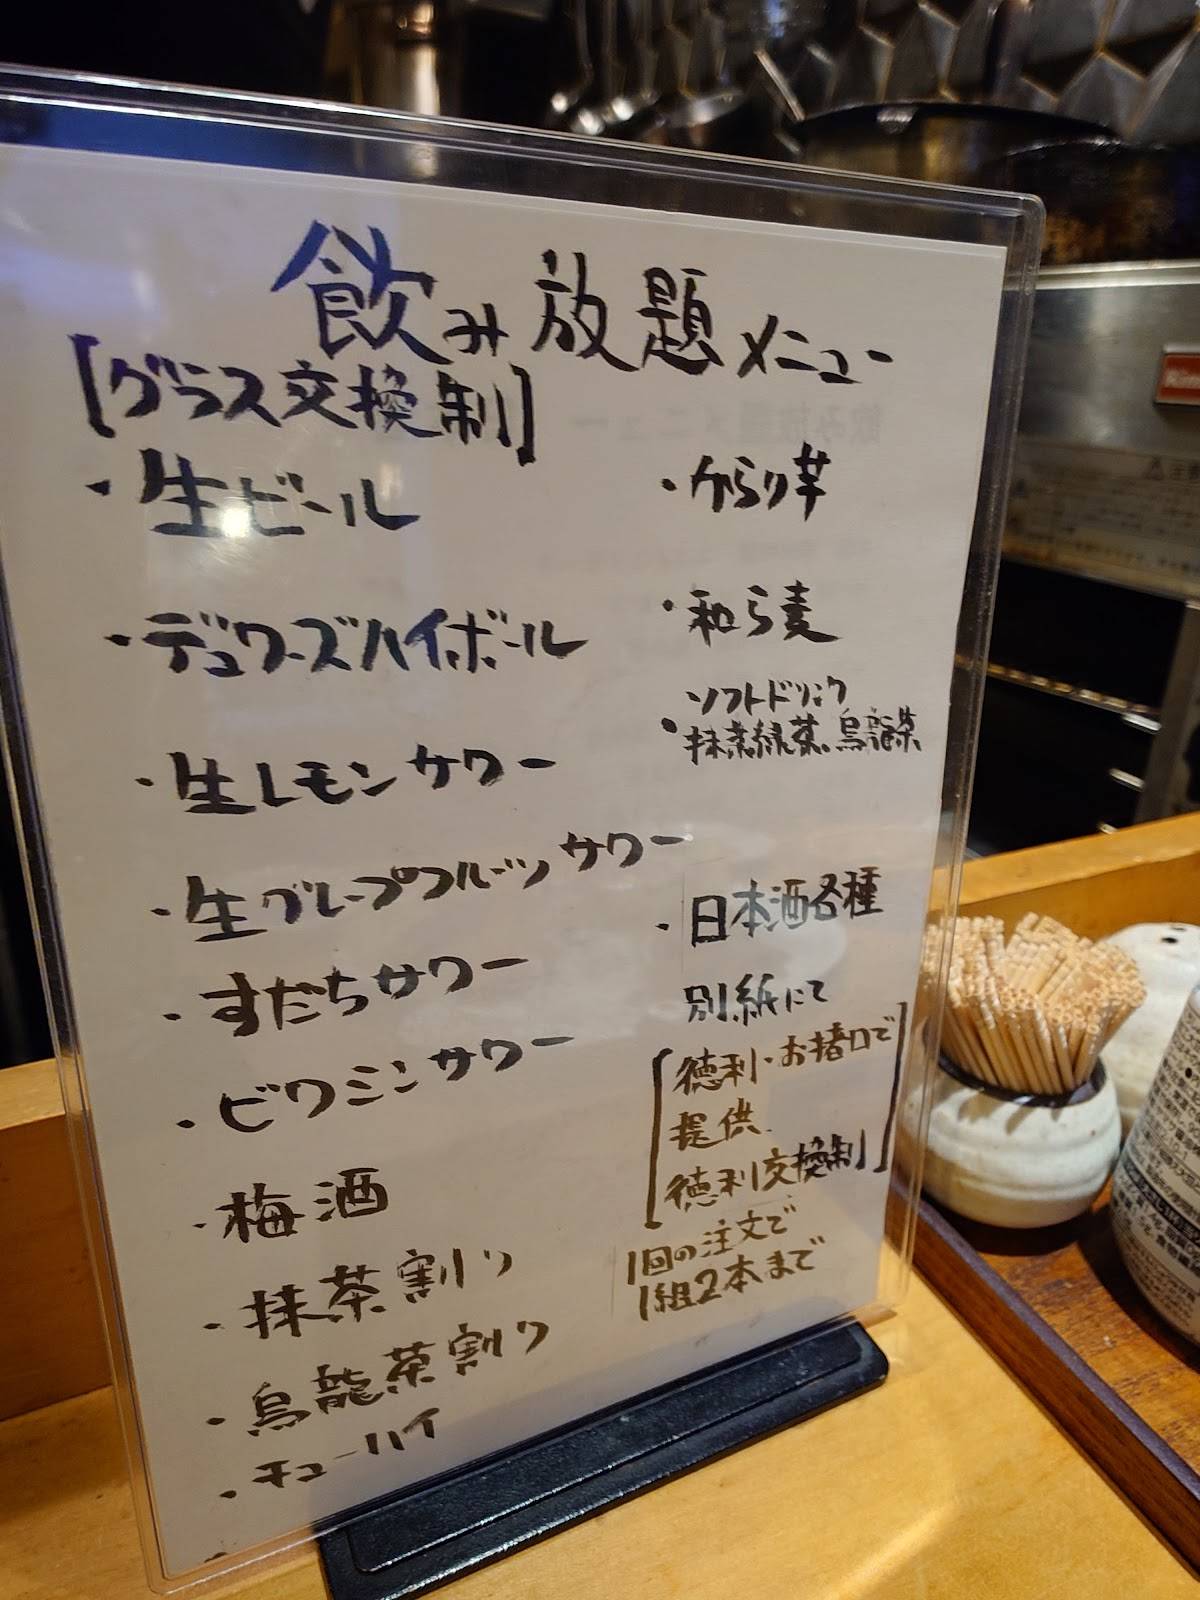 飲み放題メニュー
[グラス交換制]
・生ビール
・デュワーズハイボール
・生レモンサワー
・生グレープフルーツサワー
・すだちサワー
・ビワミンサワー
・梅酒
・抹茶割り
・烏龍茶割り
・チューハイ
・からり芋
・和ら麦
ソフトドリンク
・抹茶緑茶、烏龍茶
・日本酒各種
別紙にて
[徳利・お猪口で
提供
徳利交換制]
1回の注文で
1組2本まで